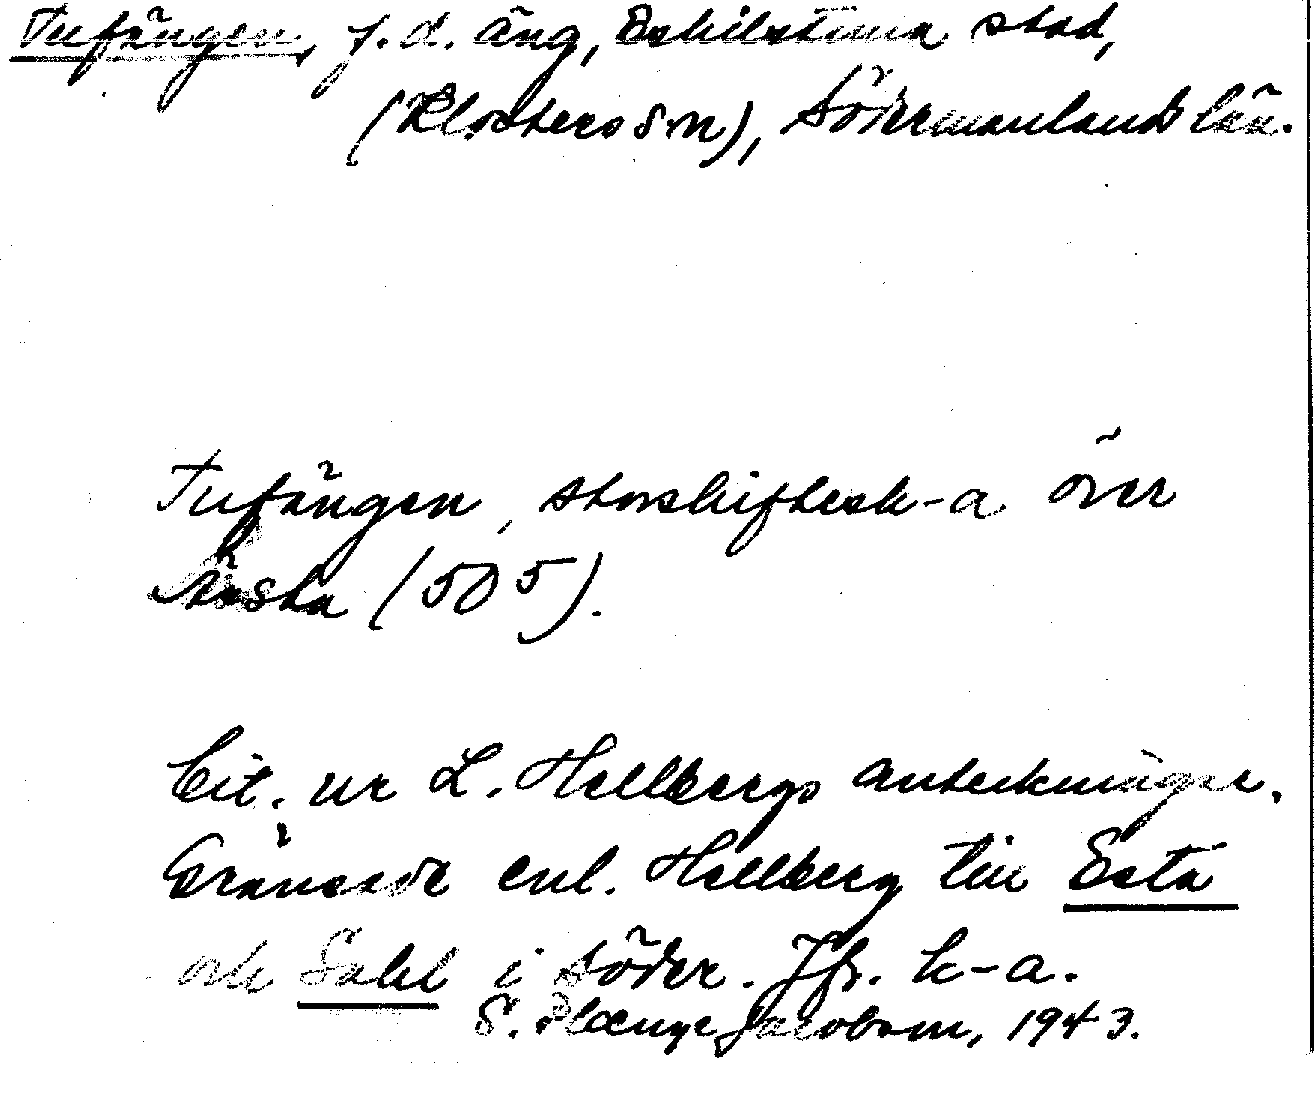 Tufängen, f.d. äng, Eskilstuna stad,
(Klosters sn), Södermanlands län.
Tufängen, storskiftesk-a över
Årsta (505).
Cit. ur L. Hellbergs anteckningar.
Gränsade enl. Hellberg till Esta
och Sahl i söder. Jfr. k-a.
S. Jacobson, 1943.